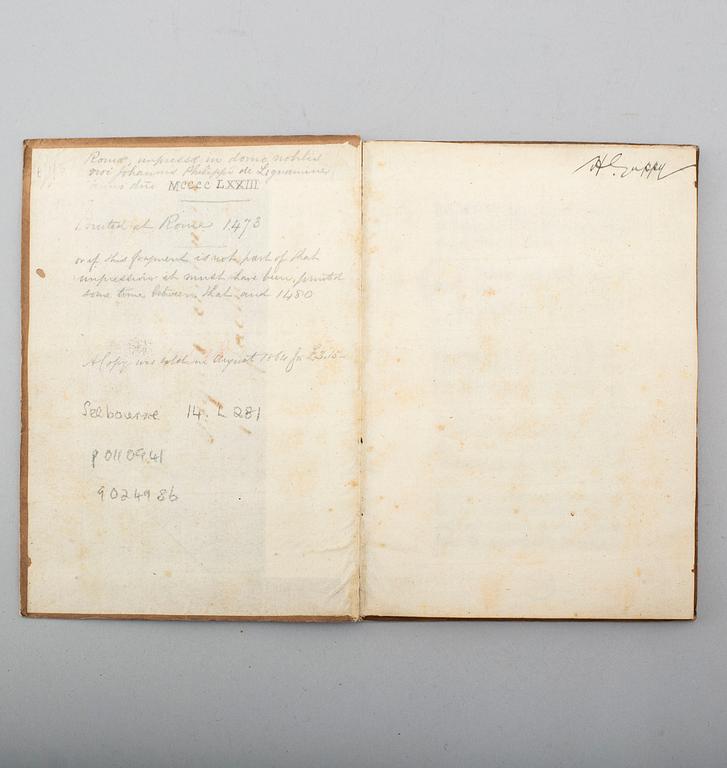 Romæ, impressa in domo nobilis
viri Johannis Philippi de Lignamine,
anno dni MCCCC LXXIII
Printed at Rome 1473
or if this fragment is not part of that
impression it must have been printed
some time between that and 1480
A Copy was sold in August 1864 for £3.15
Selbourne 14. L 281
P 0110941
9024986
H. Guppy